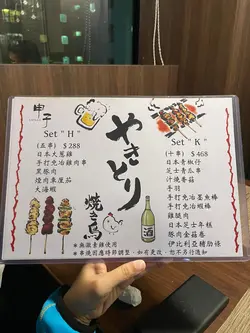 串子
Set " H "
(五串) $288
日本大葱雞
手打免治雞肉串
黑豚肉
煙肉車厘茄
大海蝦
やきとり
焼き鳥
酒
Set " K "
(十串) $468
日本青椒仔
芝士青瓜串
汁燒香菇
手羽
手打免治墨魚棒
手打免治蝦棒
雞腿肉
日本芝士年糕
豚肉金菇卷
伊比利亞豬肋條
*無激素雞使用
*串燒因應時節調整，如有更改，恕不另行通知